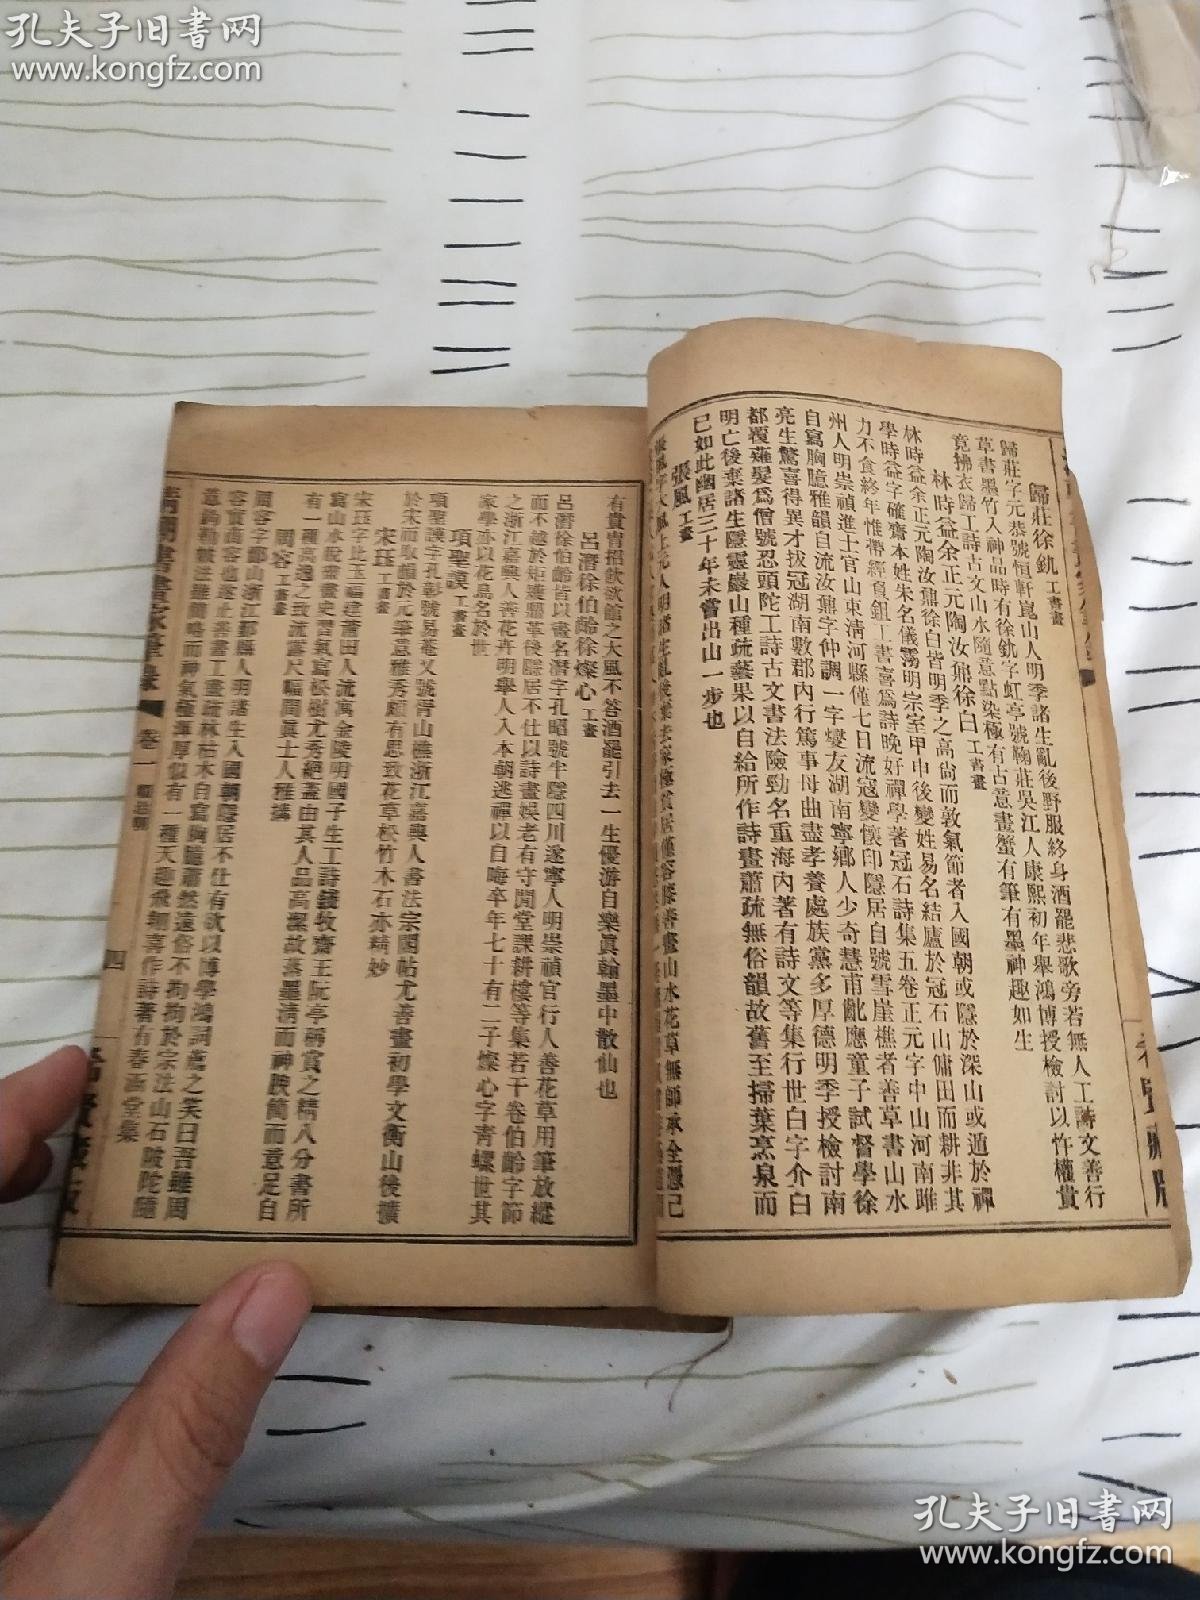 孔夫子旧書网
www.kongfz.com
歸莊徐釚工書畫
歸莊字元恭號恒軒崑山人明季諸生亂後野服終身酒罷悲歌旁若無人工詩文善行
草書墨竹入神品時有徐釚字虹亭號鞠莊吳江人康熙初年舉鴻博授檢討以忤權貴
竟拂衣歸工詩古文山水隨意點染極有古意畫蟹有筆有墨神趣如生
林時益余正元陶汝鼐徐白工書畫
林時益余正元陶汝鼐徐白皆明季之高尚而敦氣節者入國朝或隱於深山或遁於禪
學時益字確齋本姓朱名儀霶明宗室甲申後變姓易名結廬於冠石山傭田而耕非其
力不食終年惟帶經負鉏工書喜爲詩晚好禪學著冠石詩集五卷正元字中山河南睢
州人明崇禎進士官山東淸河縣僅七日流寇變懷印隱居自號雪崖樵者善草書山水
自寫胸臆雅韻自流汝鼐字仲調一字燮友湖南寧鄉人少奇慧甫齓應童子試督學徐
亮生驚喜得異才拔冠湖南數郡內行篤事母曲盡孝養處族黨多厚德明季授檢討南
都覆薙髮爲僧號忍頭陀工詩古文書法險勁名重海內著有詩文等集行世白字介白
明亡後棄諸生隱靈巖山種疏藝果以自給所作詩畫蕭疏無俗韻故舊至掃葉烹泉而
已如此幽居三十年未嘗出山一步也
張風工畫
善畫山水花草無師承全憑己
有貴胄招飮飮館之大風不荅酒罷引去一生優游自樂眞翰墨中散仙也
呂潛徐伯齡徐燦心工畫
呂潛徐伯齡皆以畫名潛字孔昭號半隱四川遂寧人明崇禎官行人善花草用筆放縱
而不越於矩矱鼎革後隱居不仕以詩畫娛老有守閒堂課耕樓等集若干卷伯齡字節
之浙江嘉興人善花卉明舉人入本朝逃禪以自晦卒年七十有二子燦心字靑螺世其
家學亦以花鳥名於世
項聖謨工書畫
項聖謨字孔彰號易菴又號胥山樵浙江嘉興人書法宗閣帖尤善畫初學文衡山後擴
於宋而取韻於元筆意雅秀頗有思致花草松竹木石亦精妙
宋珏工書畫
宋珏字比玉福建莆田人流寓金陵明國子生工詩錢牧齋王阮亭稱賞之精八分書所
寫山水脫盡畫史習氣寫松樹尤秀絕蓋由其人品高潔故落墨淸而神腴簡而意足自
有一種高逸之致流露尺幅間眞士人雅搆
周容工書畫
周容字鄮山浙江鄞縣人明諸生入國朝隱居不仕有欲以博學鴻詞薦之笑曰吾雖周
容實商容也遂止善書工畫疏林枯木自寫胸臆蕭然遠俗不拘拘於宗法山石陂陀隨
意鉤勒皴法雖簡略而神氣極渾厚似有一種天趣飛翔喜作詩著有春酒堂集
淸朝書畫家筆錄 卷一 順治朝 四
孔夫子旧書网
www.kongfz.com